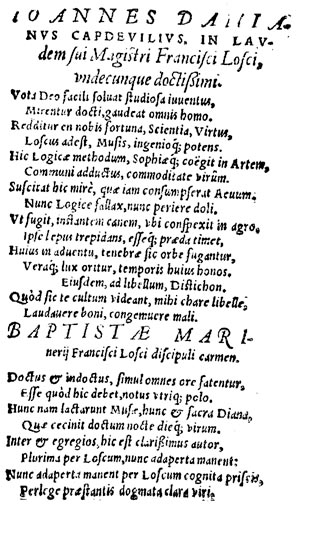 IOANNES DAMIA-
NVS CAPDEVILIVS, IN LAV-
dem sui Magistri Francisci Losci,
vndecunque doctißimi.
Vota Deo facili soluat studiosa iuuentus,
Mirentur docti, gaudeat omnis homo.
Redditur en nobis fortuna, Scientia, Virtus,
Loscus adest, Musis, ingenioq; potens.
Hic Logicæ methodum, Sophiæq; coëgit in Artem,
Communi adductus, commoditate virûm.
Suscitat hic mirè, quæ iam consumpserat Aeuum.
Nunc Logice fallax, nunc periere doli.
Vt fugit, instantem canem, vbi conspexit in agro,
Ipse lepus trepidans, esseq; præda timet,
Huius in aduentu, tenebræ sic orbe fugantur,
Veraq; lux oritur, temporis huius honos.
Eiusdem, ad libellum, Distichon.
Quòd sic te cultum videant, mihi chare libelle,
Laudauere boni, congemuere mali.
BAPTISTÆ MARI-
nerij Francisci Losci discipuli carmen.
Doctus & indoctus, simul omnes ore fatentur,
Esse quòd hic debet, notus vtriq; polo.
Hunc nam lactarunt Musæ, hunc & sacra Diana,
Quæ cecinit doctum nocte dieq; virum.
Inter & egregios, hic est clarißimus autor,
Plurima per Loscum, nunc adaperta manent:
Nunc adaperta manent per Loscum cognita priscis,
Perlege præstantis dogmata clara viri.